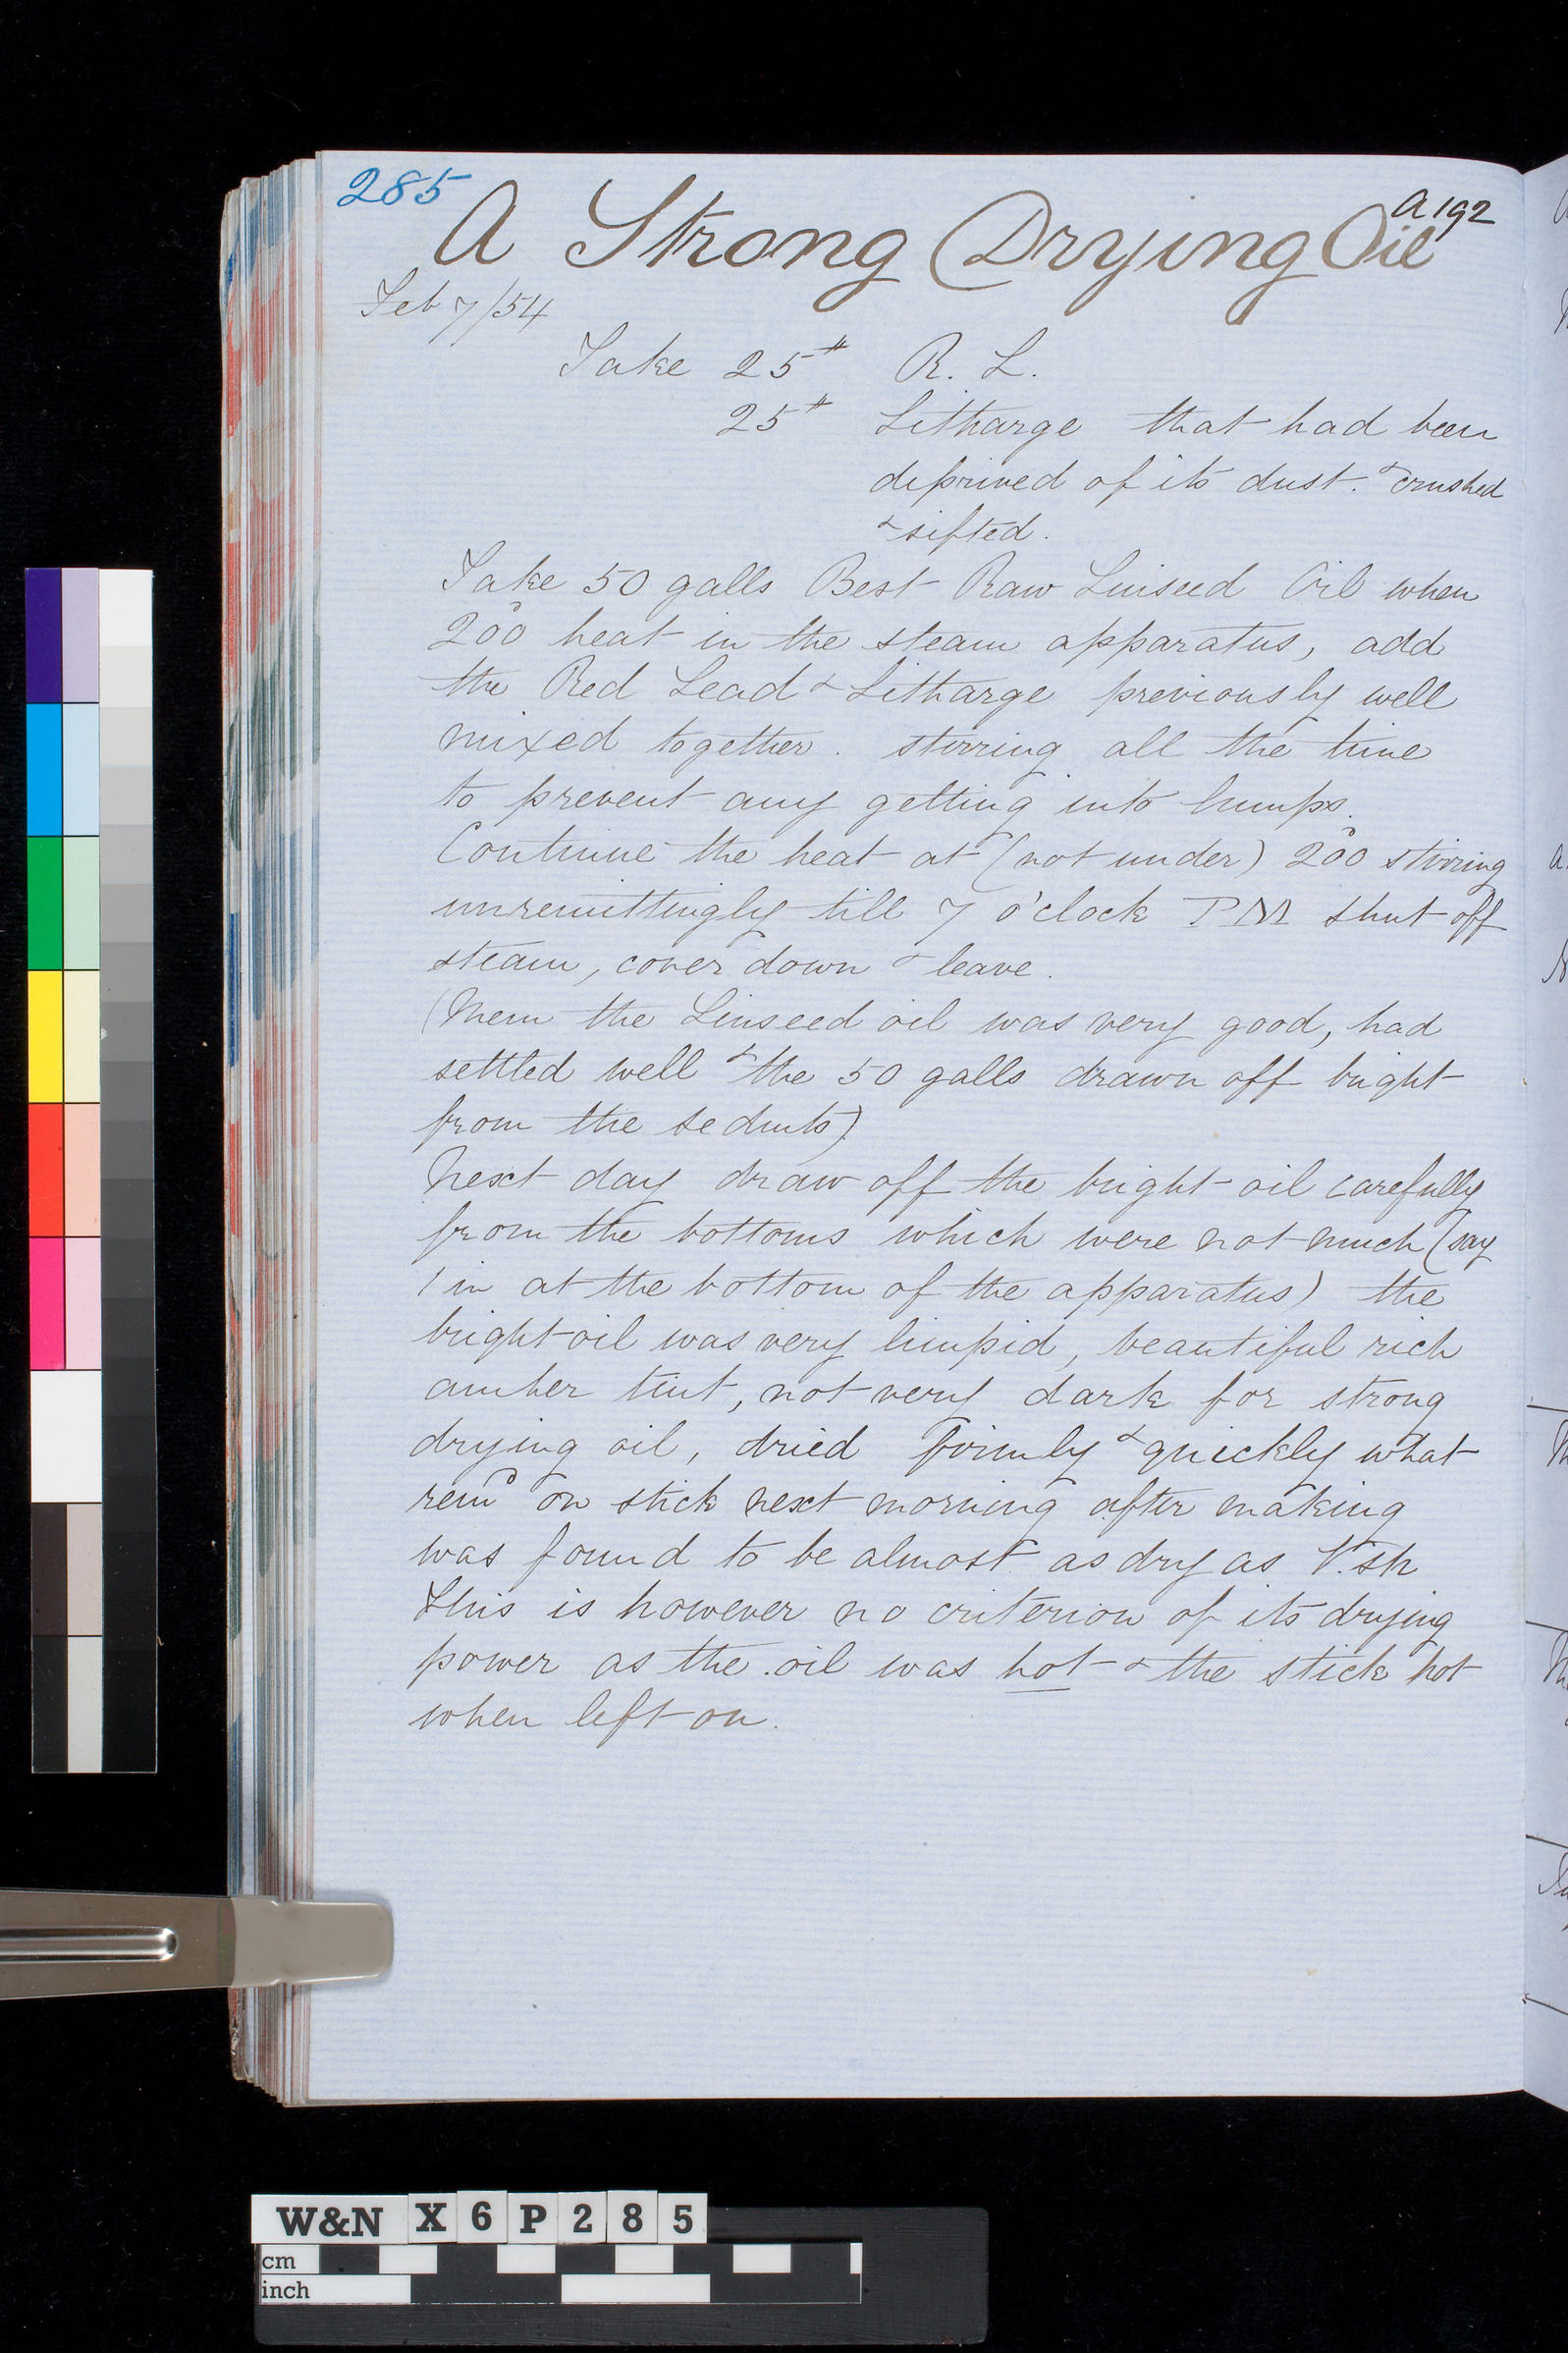 285
A 192
A Strong Drying Oil
Feb 7/54
Take 25# R. L.
25# Litharge that had been
deprived of its dust. & crushed
& sifted.
Take 50 galls Best Raw Linseed Oil when
200° heat in the steam apparatus, add
the Red Lead & Litharge previously well
mixed together. stirring all the time
to prevent any getting into lumps.
Continue the heat at (not under) 200° stirring
unremittingly till 7 o'clock PM shut off
steam, cover down & leave.
(Mem the Linseed oil was very good, had
settled well & the 50 galls drawn off bright
from the sedmts)
Next day draw off the bright oil carefully
from the bottoms which were not much (say
1 in at the bottom of the apparatus) the
bright oil was very limpid, beautiful rich
amber tint, not very dark for strong
drying oil, dried firmly & quickly what
remd on stick next morning after making
was found to be almost as dry as V.sh
This is however no criterion of its drying
power as the oil was hot & the stick hot
when left on.
W&N X 6 P 2 8 5
cm
inch